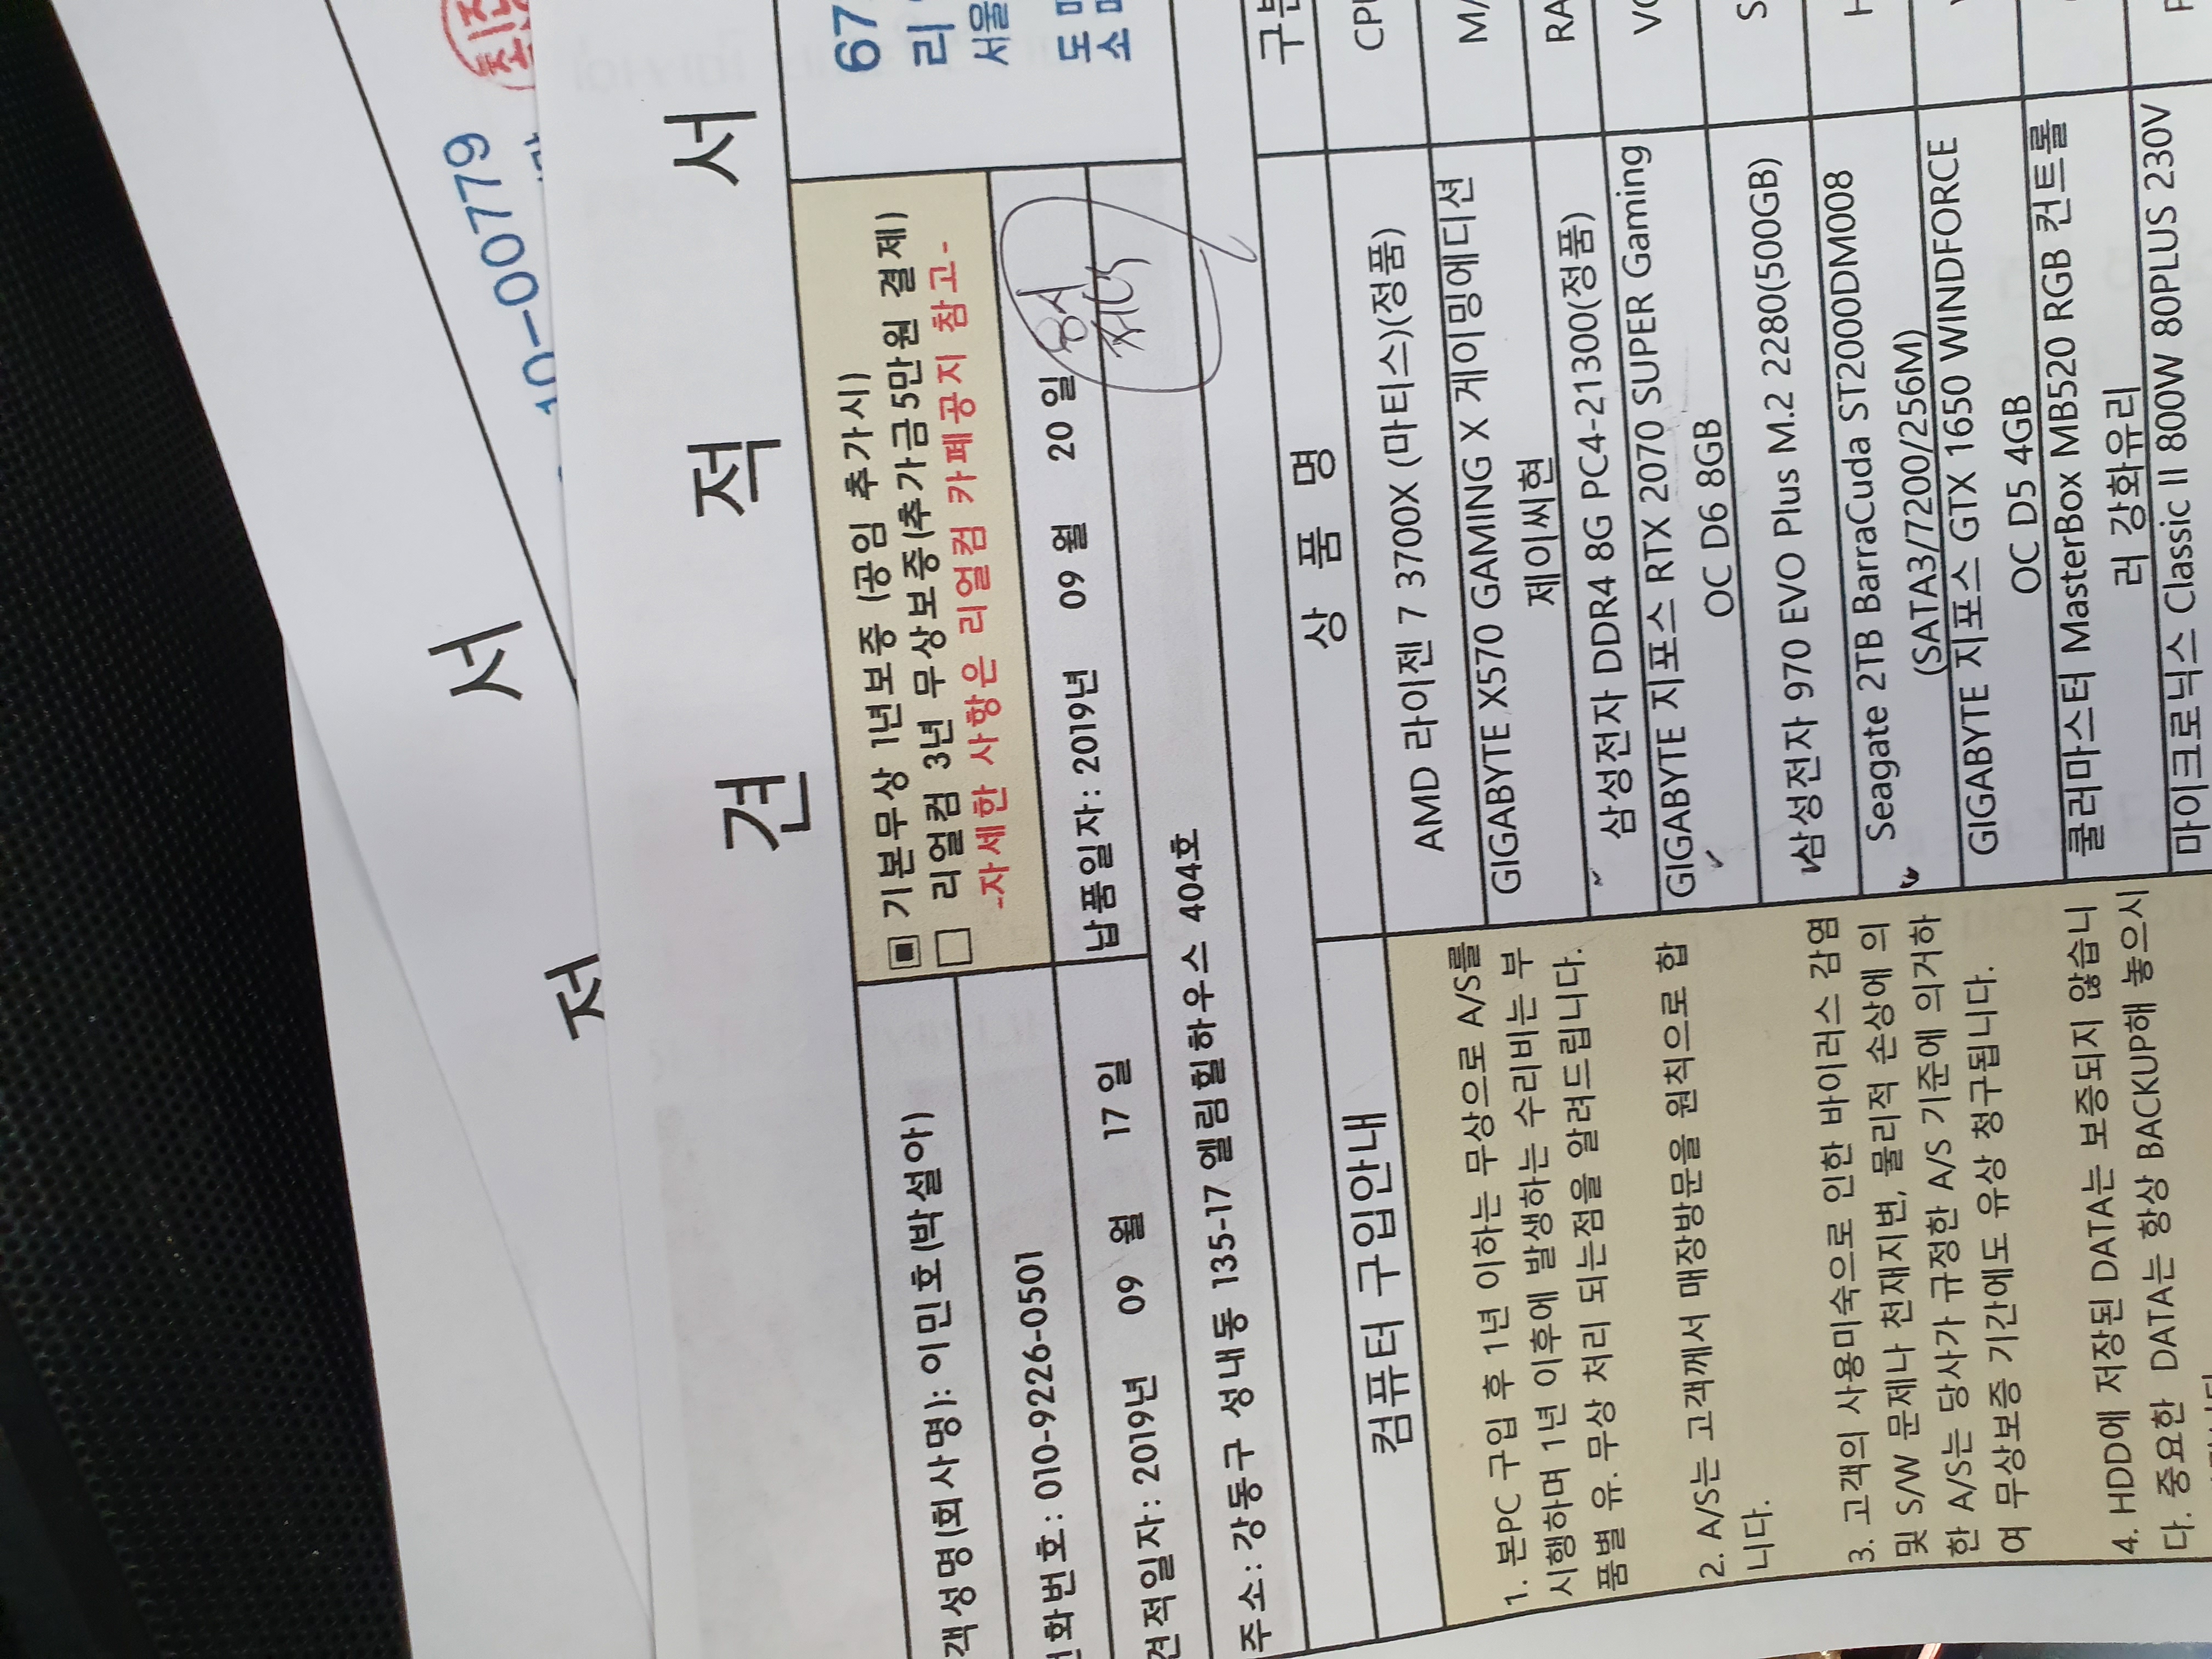 서
10-00779
견 적 서
기본무상 1년보증 (공임 추가시)
리얼컴 3년 무상보증(추가금5만원 결제)
-자세한 사항은 리얼컴 카페공지 참고-
객성명(회사명): 이민호(박설아)
화번호: 010-9226-0501
견적일자: 2019년 09 월 17 일
납품일자: 2019년 09 월 20 일
8시
주소: 강동구 성내동 135-17 엘림힐하우스 404호
67
리
서울
도
소
컴퓨터 구입안내
상 품 명
구분
1. 본PC 구입 후 1년 이하는 무상으로 A/S를
시행하며 1년 이후에 발생하는 수리비는 부
품별 유. 무상 처리 되는점을 알려드립니다.
2. A/S는 고객께서 매장방문을 원칙으로 합
니다.
3. 고객의 사용미숙으로 인한 바이러스 감염
및 S/W 문제나 천재지변, 물리적 손상에 의
한 A/S는 당사가 규정한 A/S 기준에 의거하
여 무상보증 기간에도 유상 청구됩니다.
4. HDD에 저장된 DATA는 보증되지 않습니
다. 중요한 DATA는 항상 BACKUP해 놓으시
AMD 라이젠 7 3700X (마티스)(정품)
GIGABYTE X570 GAMING X 게이밍에디션
제이씨현
삼성전자 DDR4 8G PC4-21300(정품)
GIGABYTE 지포스 RTX 2070 SUPER Gaming
OC D6 8GB
삼성전자 970 EVO Plus M.2 2280(500GB)
Seagate 2TB BarraCuda ST2000DM008
(SATA3/7200/256M)
GIGABYTE 지포스 GTX 1650 WINDFORCE
OC D5 4GB
쿨러마스터 MasterBox MB520 RGB 컨트롤
러 강화유리
마이크로닉스 Classic II 800W 80PLUS 230V
CPU
M/
RA